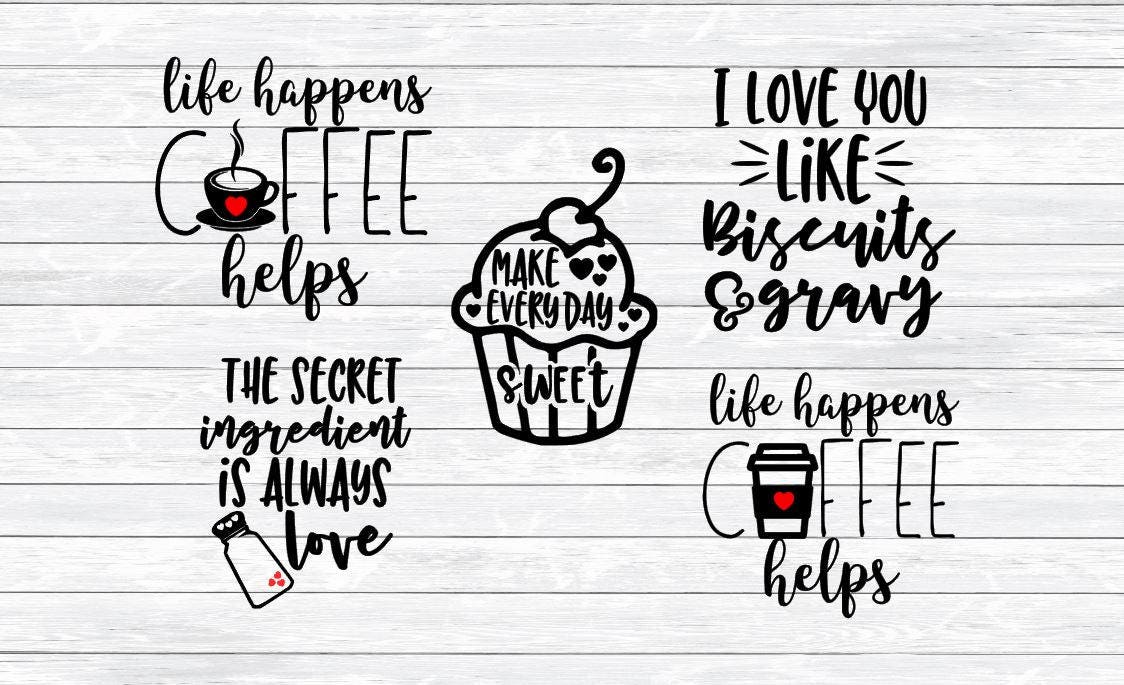 life happens
COFFEE
helps
THE SECRET
ingredient
iS ALWAYS
love
MAKE
EVERYDAY
SWEEt
I LOVE YOU
LiKE
Biscuits
& gravy
life happens
COFFEE
helps